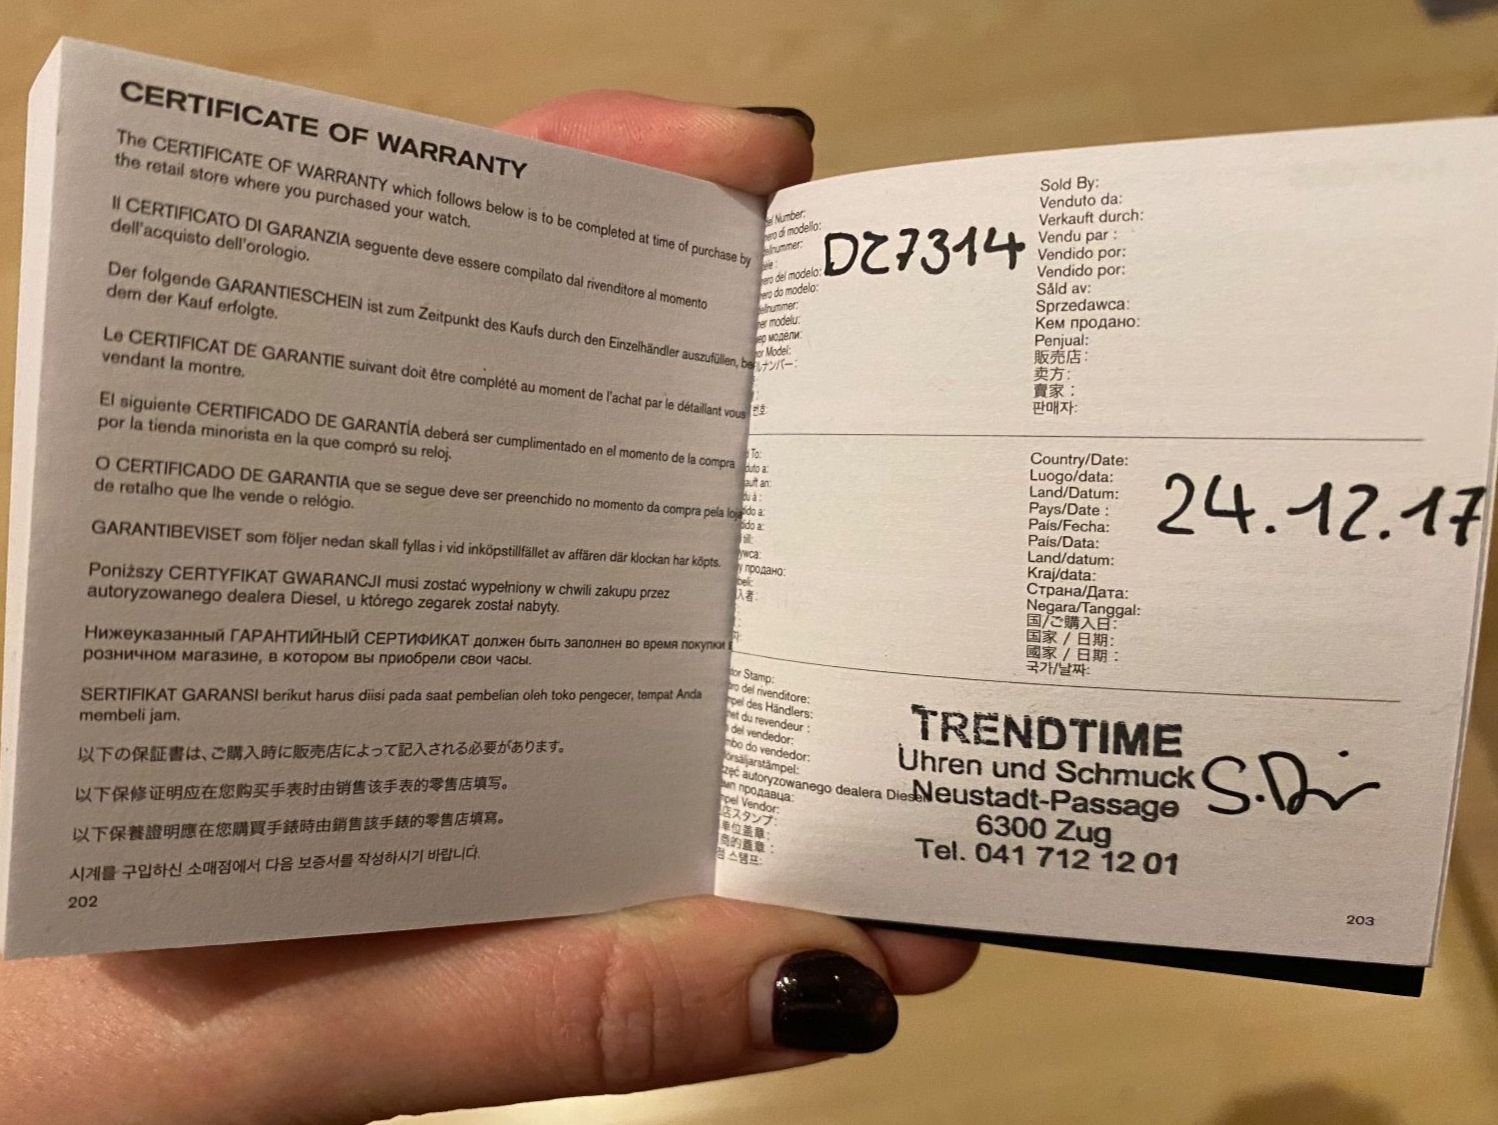 CERTIFICATE OF WARRANTY
The CERTIFICATE OF WARRANTY which follows below is to be completed at time of purchase by
the retail store where you purchased your watch.
Il CERTIFICATO DI GARANZIA seguente deve essere compilato dal rivenditore al momento
dell'acquisto dell'orologio.
Der folgende GARANTIESCHEIN ist zum Zeitpunkt des Kaufs durch den Einzelhändler auszufüllen,
dem der Kauf erfolgte.
Le CERTIFICAT DE GARANTIE suivant doit être complété au moment de l'achat par le détaillant vous
vendant la montre.
El siguiente CERTIFICADO DE GARANTÍA deberá ser cumplimentado en el momento de la compra
por la tienda minorista en la que compró su reloj.
O CERTIFICADO DE GARANTIA que se segue deve ser preenchido no momento da compra pela loja
de retalho que lhe vende o relógio.
GARANTIBEVISET som följer nedan skall fyllas i vid inköpstillfället av affären där klockan har köpts.
Poniższy CERTYFIKAT GWARANCJI musi zostać wypełniony w chwili zakupu przez
autoryzowanego dealera Diesel, u którego zegarek został nabyty.
Нижеуказанный ГАРАНТИЙНЫЙ СЕРТИФИКАТ должен быть заполнен во время покупки в
розничном магазине, в котором вы приобрели свои часы.
SERTIFIKAT GARANSI berikut harus diisi pada saat pembelian oleh toko pengecer, tempat Anda
membeli jam.
以下の保証書は、ご購入時に販売店によって記入される必要があります。
以下保修证明应在您购买手表时由销售该手表的零售店填写。
以下保養證明應在您購買手錶時由銷售該手錶的零售店填寫。
시계를 구입하신 소매점에서 다음 보증서를 작성하시기 바랍니다.
202
Number:
di modello:
del modelo:
do modelo:
modelu:
модели:
Model:
DZ7314
Sold By:
Venduto da:
Verkauft durch:
Vendu par :
Vendido por:
Vendido por:
Såld av:
Sprzedawca:
Кем продано:
Penjual:
販売店:
卖方:
賣家：
판매자:
To:
продано:
Country/Date:
Luogo/data:
Land/Datum:
Pays/Date :
País/Fecha:
País/Data:
Land/datum:
Kraj/data:
Страна/Дата:
Negara/Tanggal:
国/ご購入日:
国家 / 日期:
國家 / 日期：
국가/날짜:
24.12.17
Stamp:
del rivenditore:
des Händlers:
du revendeur :
del vendedor:
do vendedor:
autoryzowanego dealera Diesel
продавца:
Vendor:
スタンプ:
TRENDTIME
Uhren und Schmuck
Neustadt-Passage
6300 Zug
Tel. 041 712 12 01
203